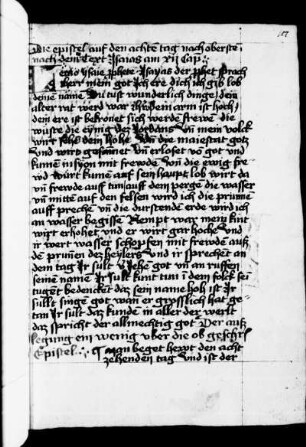 Die epistel auf den achte tag nach oberste
nach dem Text Isayas am xii Cap
Lectio Isaie prophete Isayas der prophet sprach
Herr mein got ich ere dich ich gib lob
deine name Du tust wunderliche dinge dein
alter rat werd war Herr dein arm ist hoch
dein ere ist bekronet sich werde frewe die
wuste die eynig der Jordans Vn mein volck
wirt sehe den hohe Von die maiestat gotz
Vnd wirt gesamet vn erloset von got vnd
kume in syon mit frewde Von die ewig fre
wd wirt kume auf sein haupt lob wirt da
vn frewde auf tun auff dem perge die wasser
vn mitte auf den felsen wird ich die prunne
auff preche vn die durstende erde wird ich
an wasser begisse Nempt war mein kint
wirt erhohet und er wirt gar hoche und
ir wert wasser schopfen mit frewde auß
de prunen dez heylers Vnd ir sprechet an
dem tag Ir sult veiehe got vn an ruffen
seinen name Ir sult kunt tun in dem folck sei
tuget bedencket daz sein name hoh ist Ir
sullt singe got wan er grosslich hat ge-
tan Ir sult daz kunde in aller der werlt
daz spricht der allmechtig got Der auß
legung ein wenig vber die ob geschri
Epistel
Man beget hewt den acht
zehenden tag Vnd ist der